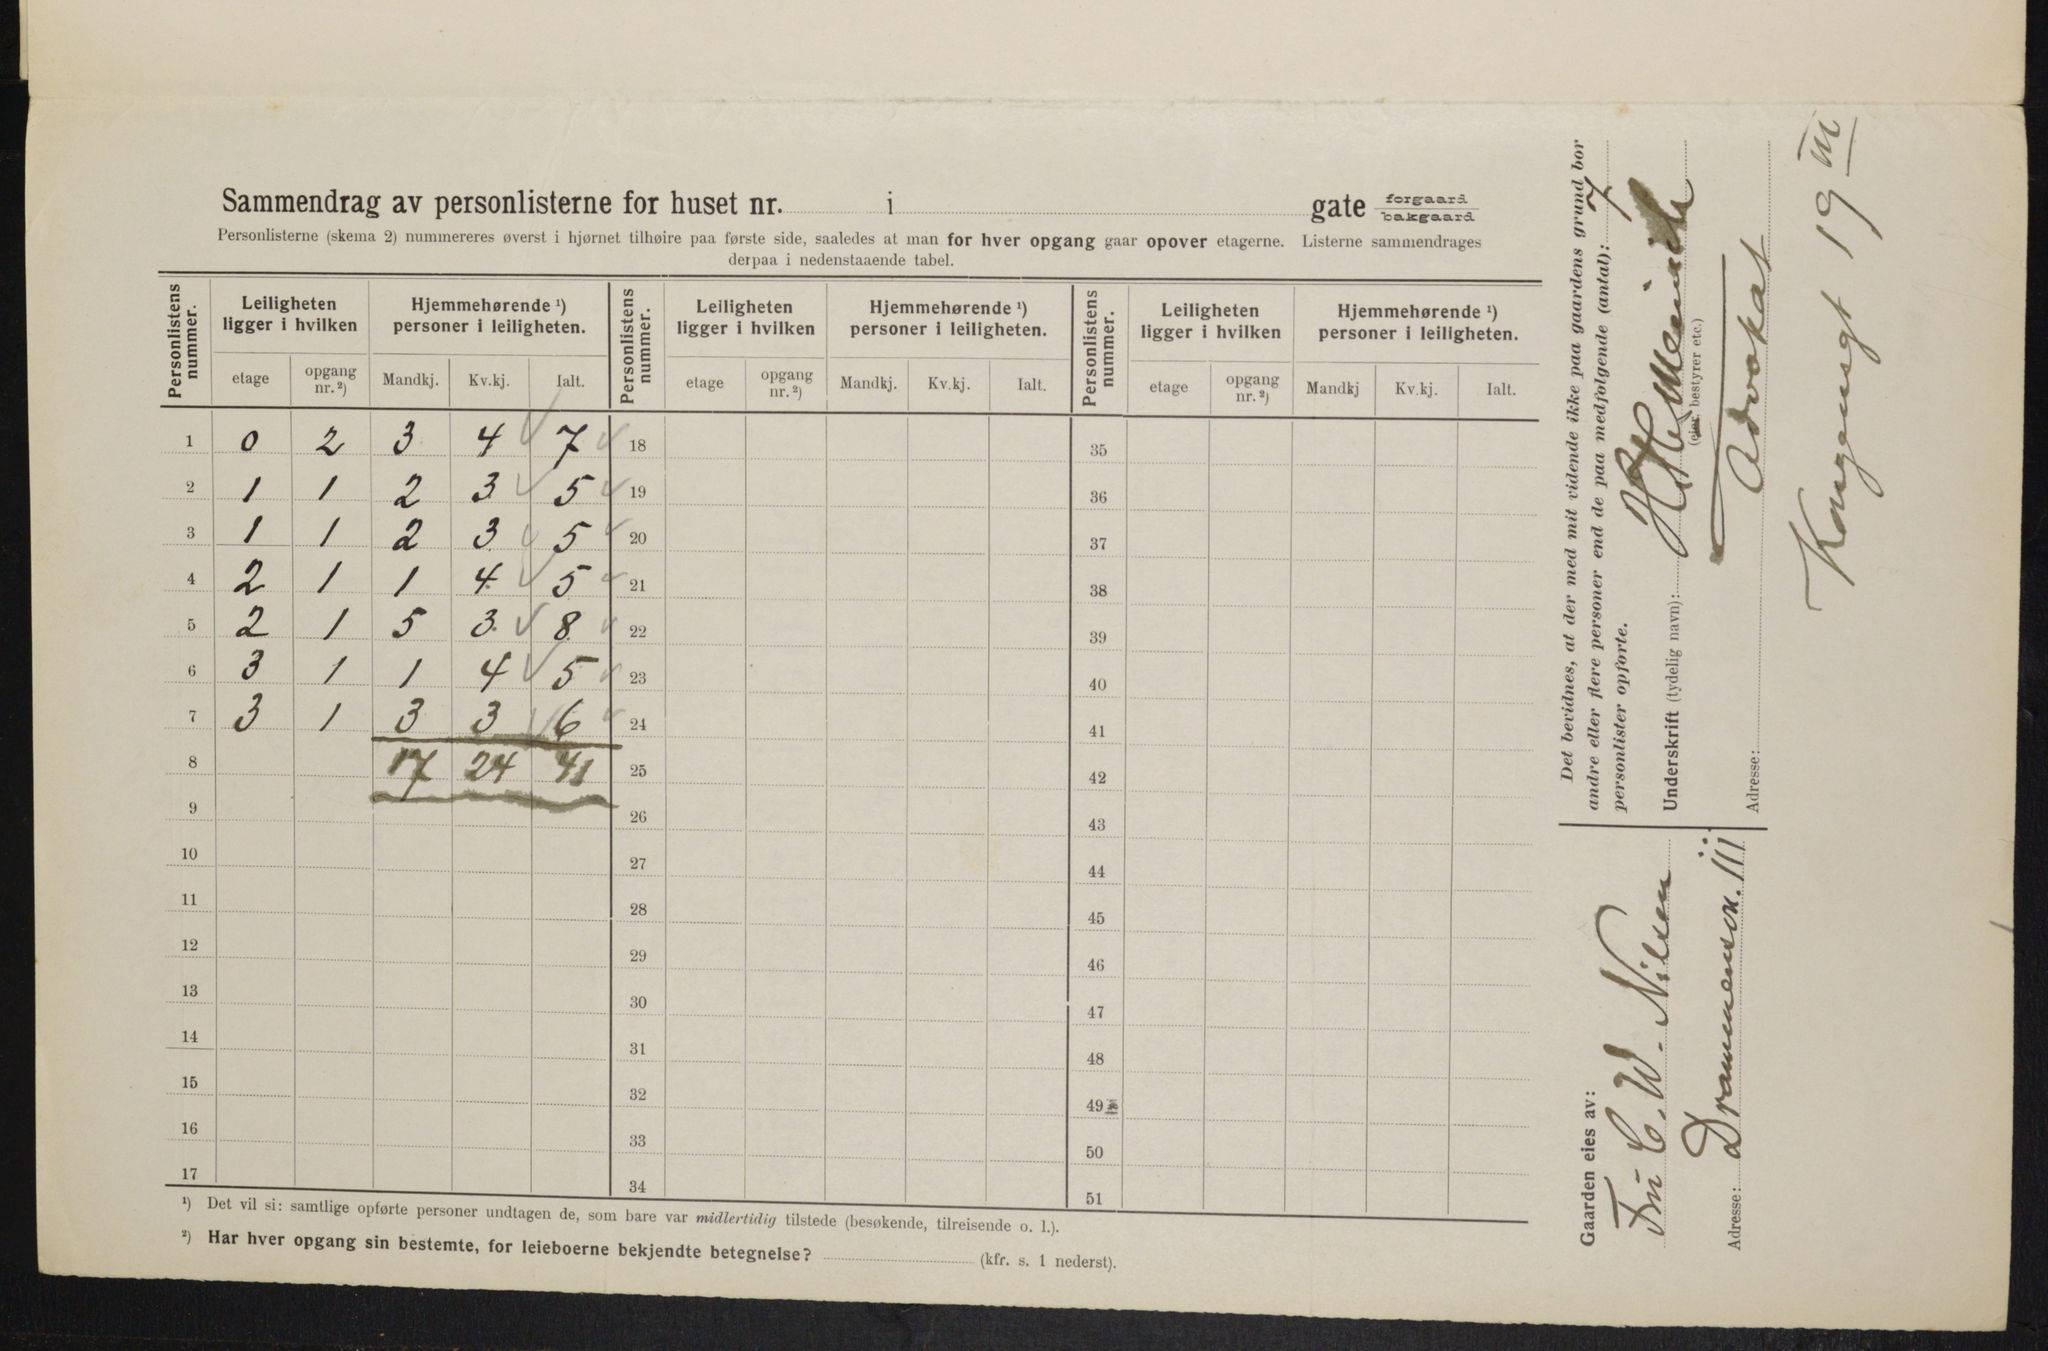 Sammendrag av personlisterne for huset nr. i gate forgaard bakgaard
Personlisterne (skema 2) nummereres øverst i hjørnet tilhøire paa første side, saaledes at man for hver opgang gaar opover etagerne. Listerne sammendrages
derpaa i nedenstaaende tabel.
Personlistens nummer. Leiligheten ligger i hvilken Hjemmehørende ¹) personer i leiligheten. Personlistens nummer. Leiligheten ligger i hvilken Hjemmehørende ¹) personer i leiligheten. Personlistens nummer. Leiligheten ligger i hvilken Hjemmehørende ¹) personer i leiligheten.
etage opgang nr. ²) Mandkj. Kv.kj. Ialt. etage opgang nr. ²) Mandkj. Kv.kj. Ialt. etage opgang nr. ²) Mandkj Kv.kj. Ialt.
1 0 2 3 4 7 18 35
2 1 1 2 3 5 19 36
3 1 1 2 3 5 20 37
4 2 1 1 4 5 21 38
5 2 1 5 3 8 22 39
6 3 1 1 4 5 23 40
7 3 1 3 3 6 24 41
8 17 24 41 25 42
9 26 43
10 27 44
11 28 45
12 29 46
13 30 47
14 31 48
15 32 49
16 33 50
17 34 51
¹) Det vil si: samtlige opførte personer undtagen de, som bare var midlertidig tilstede (besøkende, tilreisende o. l.).
²) Har hver opgang sin bestemte, for leieboerne bekjendte betegnelse? (kfr. s. 1 nederst).
Det bevidnes, at der med mit vidende ikke paa gaardens grund bor
andre eller flere personer end de paa medfølgende (antal): 7
personlister opførte.
Underskrift (tydelig navn):
(eier, bestyrer etc.)
Advokat
Adresse:
Kongensgt 19 III
Gaarden eies av:
Fru C. W. Nilsen
Adresse: Drammensv. 111